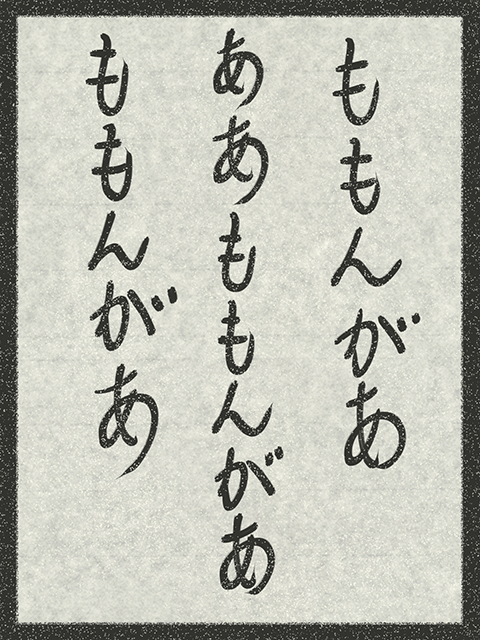 ももんがあ
ああももんがあ
ももんがあ